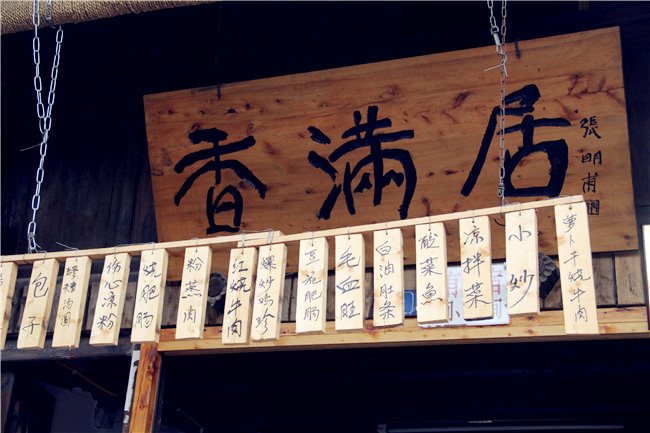 香满居
張明甫題
包子
蜂糖沟圆
伤心凉粉
烧肥肠
粉蒸肉
红烧牛肉
爆炒鸡珍
豆花肥肠
毛血旺
白油肚条
酸菜魚
凉拌菜
小炒
萝卜干烧牛肉
有
小